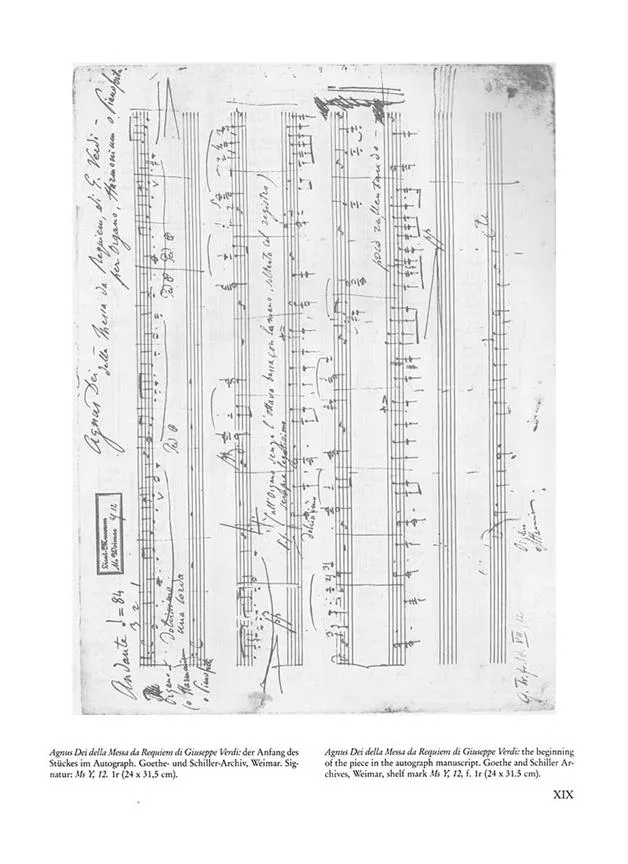 Agnus Dei –
della Messa da Requiem, di G. Verdi –
per Organo, Harmonium o Pianoforte
Liszt-Museum
Ms Weimar Y 12
Andante ♩ = 84
Organo
(o Harmonium
o Pianoforte
Dolcissimo
una corda
Ped
Ped
Ped
pp
(all'Organo senza l'Ottava bassa con la mano, soltanto col registro)
sempre legatissimo
dolcissimo
pp
poco rallentando –
pp
Agnus Dei della Messa da Requiem di Giuseppe Verdi: der Anfang des
Stückes im Autograph. Goethe- und Schiller-Archiv, Weimar. Sig-
natur: Ms Y, 12. 1r (24 x 31,5 cm).
Agnus Dei della Messa da Requiem di Giuseppe Verdi: the beginning
of the piece in the autograph manuscript. Goethe and Schiller Ar-
chives, Weimar, shelf mark Ms Y, 12, f. 1r (24 x 31.5 cm).
XIX